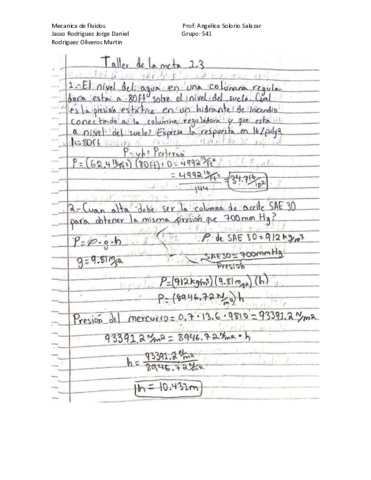 Mecanica de fluidos
Prof: Angelica Solorio Salazar
Jasso Rodriguez Jorge Daniel
Grupo: 541
Rodriguez Oliveros Martin
Taller de la meta 1.3
1.- El nivel del agua en una columna regula
dora esta a 80ft sobre el nivel del suelo. Cual
es la presión estática en un hidrante de incendio
conectado a la columna reguladora y que esta
a nivel del suelo? Exprese la respuesta en lb/pulg2
h=80ft
P=γh+Pexterna
P=(62.4 lb/ft3)(80ft)+0=4992 lb/ft2
=4992 lb/ft2 / 144 = 34.7 lb/in2
2.- Cuan alta debe ser la columna de aceite SAE 30
para obtener la misma presión que 700 mm Hg?
P=ρ·g·h
ρ de SAE 30=912 kg/m3
g=9.81 m/s2
SAE30=700mmHg
Presión
P=(912 kg/m3)(9.81 m/s2)(h)
P=(8946.72 N/m3)h
Presión del mercurio=0.7·13.6·9810=93391.2 N/m2
93391.2 N/m2=8946.72 N/m3·h
h= 93391.2 N/m2 / 8946.72 N/m3
h=10.432m